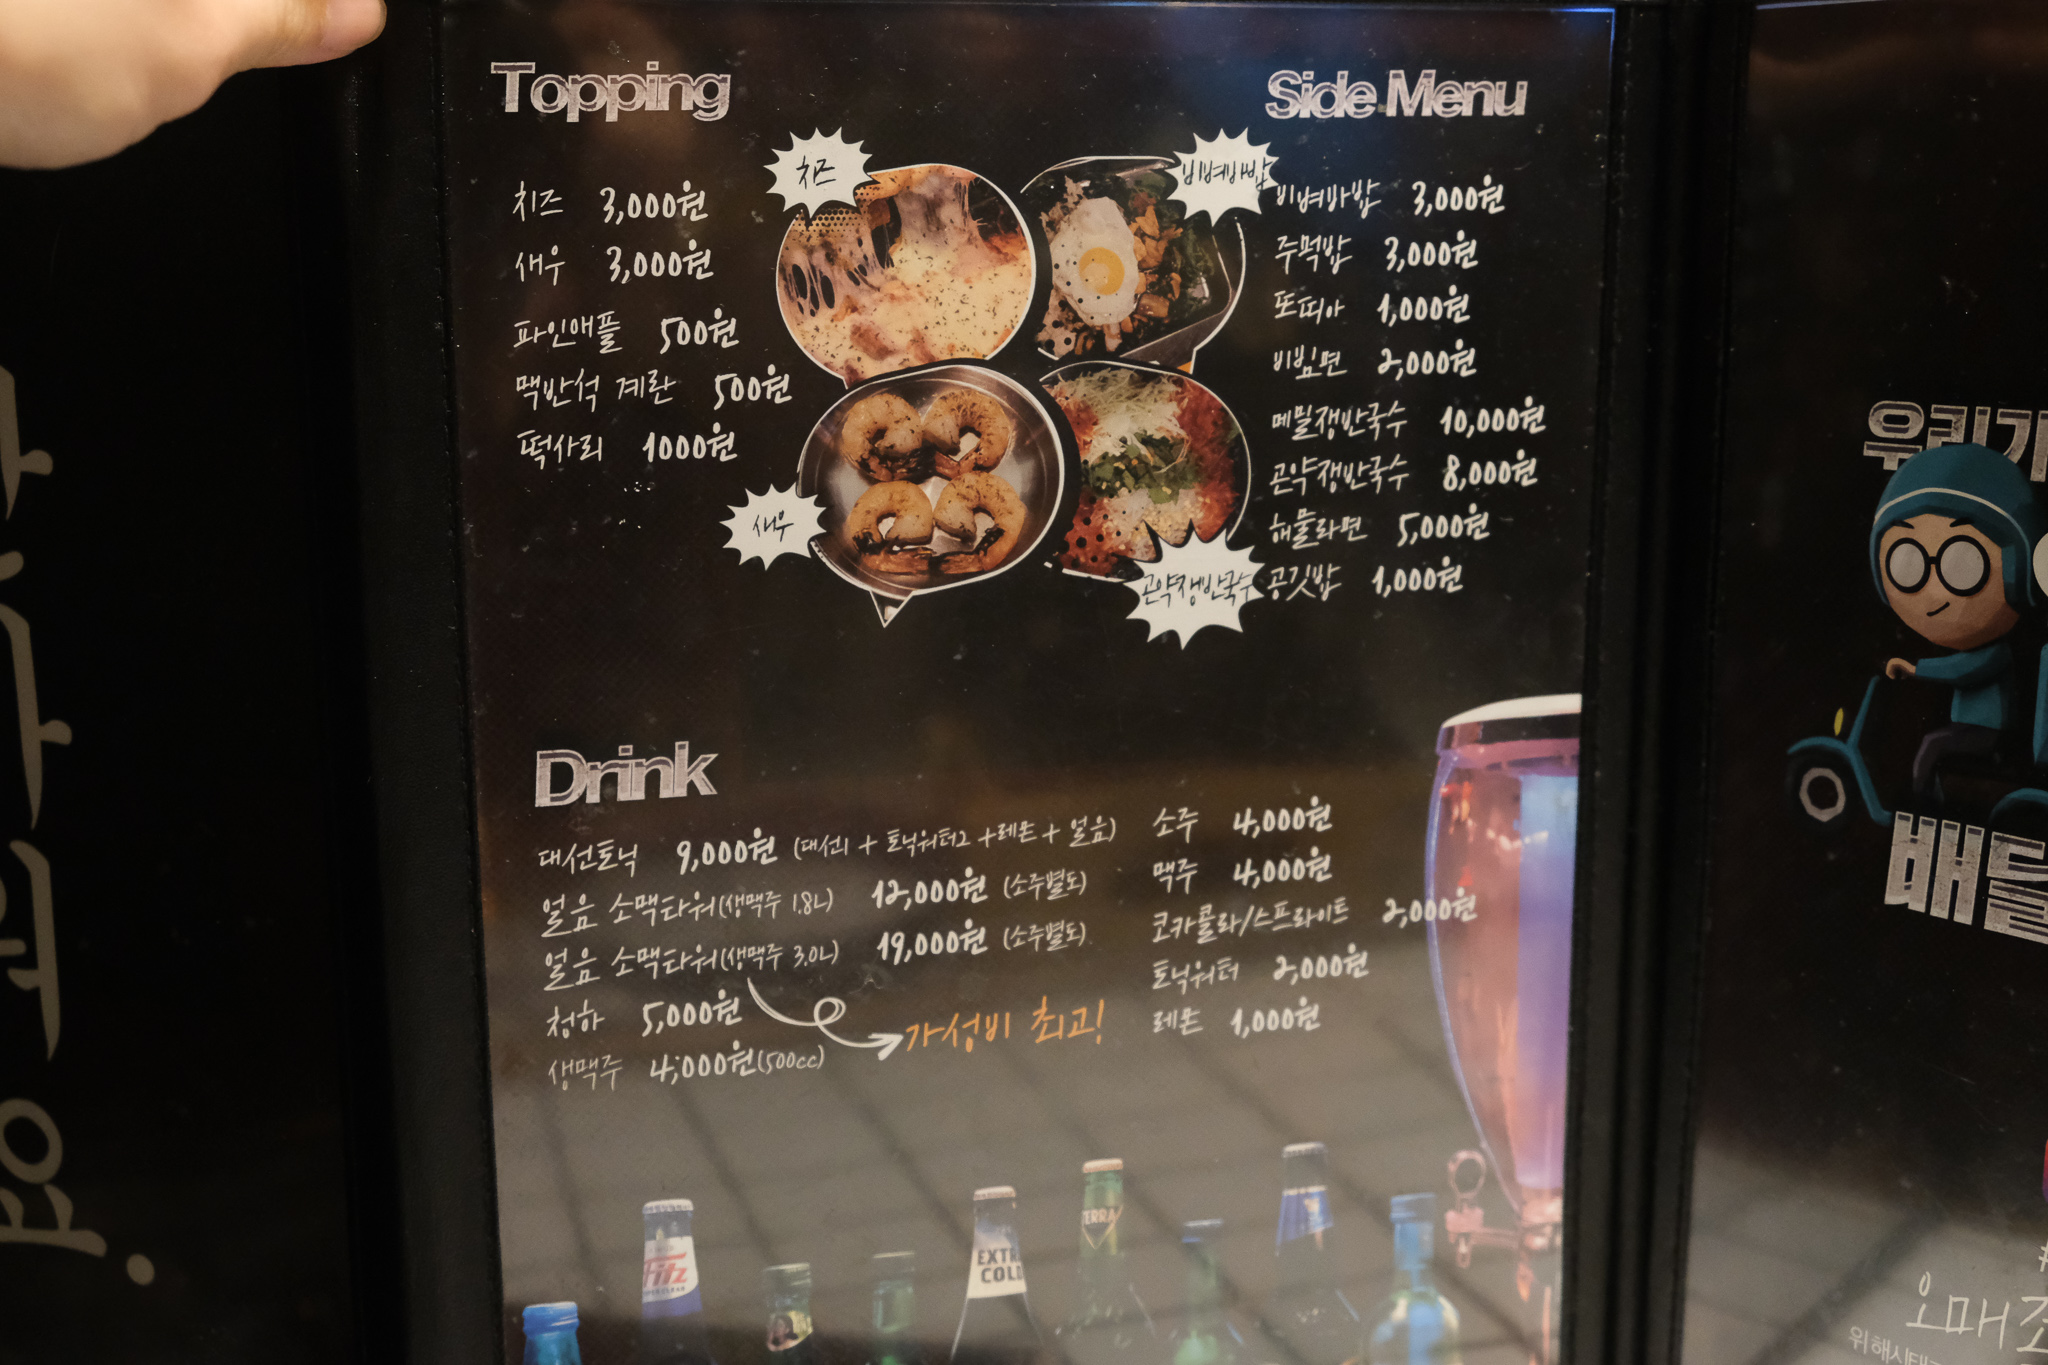 Topping
치즈 3,000원
새우 3,000원
파인애플 500원
맥반석 계란 500원
떡사리 1000원
치즈
비벼바밥
새우
곤약쟁반국수
Side Menu
비벼바밥 3,000원
주먹밥 3,000원
또띠아 1,000원
비빔면 2,000원
메밀쟁반국수 10,000원
곤약쟁반국수 8,000원
해물라면 5,000원
공깃밥 1,000원
Drink
대선토닉 9,000원 (대선1 + 토닉워터2 +레몬 + 얼음)
얼음 소맥타워(생맥주 1.8L) 12,000원 (소주별도)
얼음 소맥타워(생맥주 3.0L) 19,000원 (소주별도)
청하 5,000원
생맥주 4,000원(500cc)
가성비 최고!
소주 4,000원
맥주 4,000원
코카콜라/스프라이트 2,000원
토닉워터 2,000원
레몬 1,000원
Fitz
EXTRA
COLD
TERRA
우리가
배달